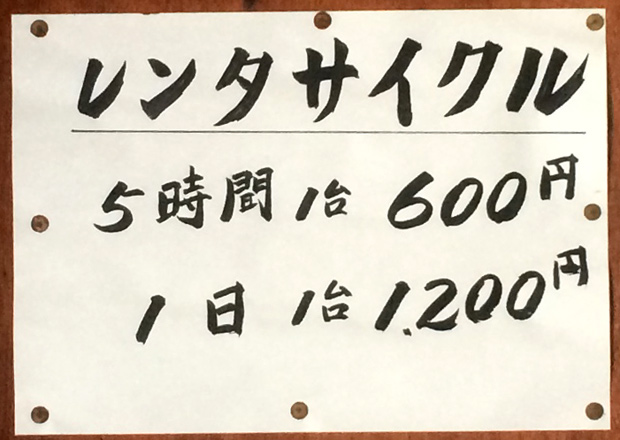 レンタサイクル
5時間 1台 600円
1日 1台 1.200円